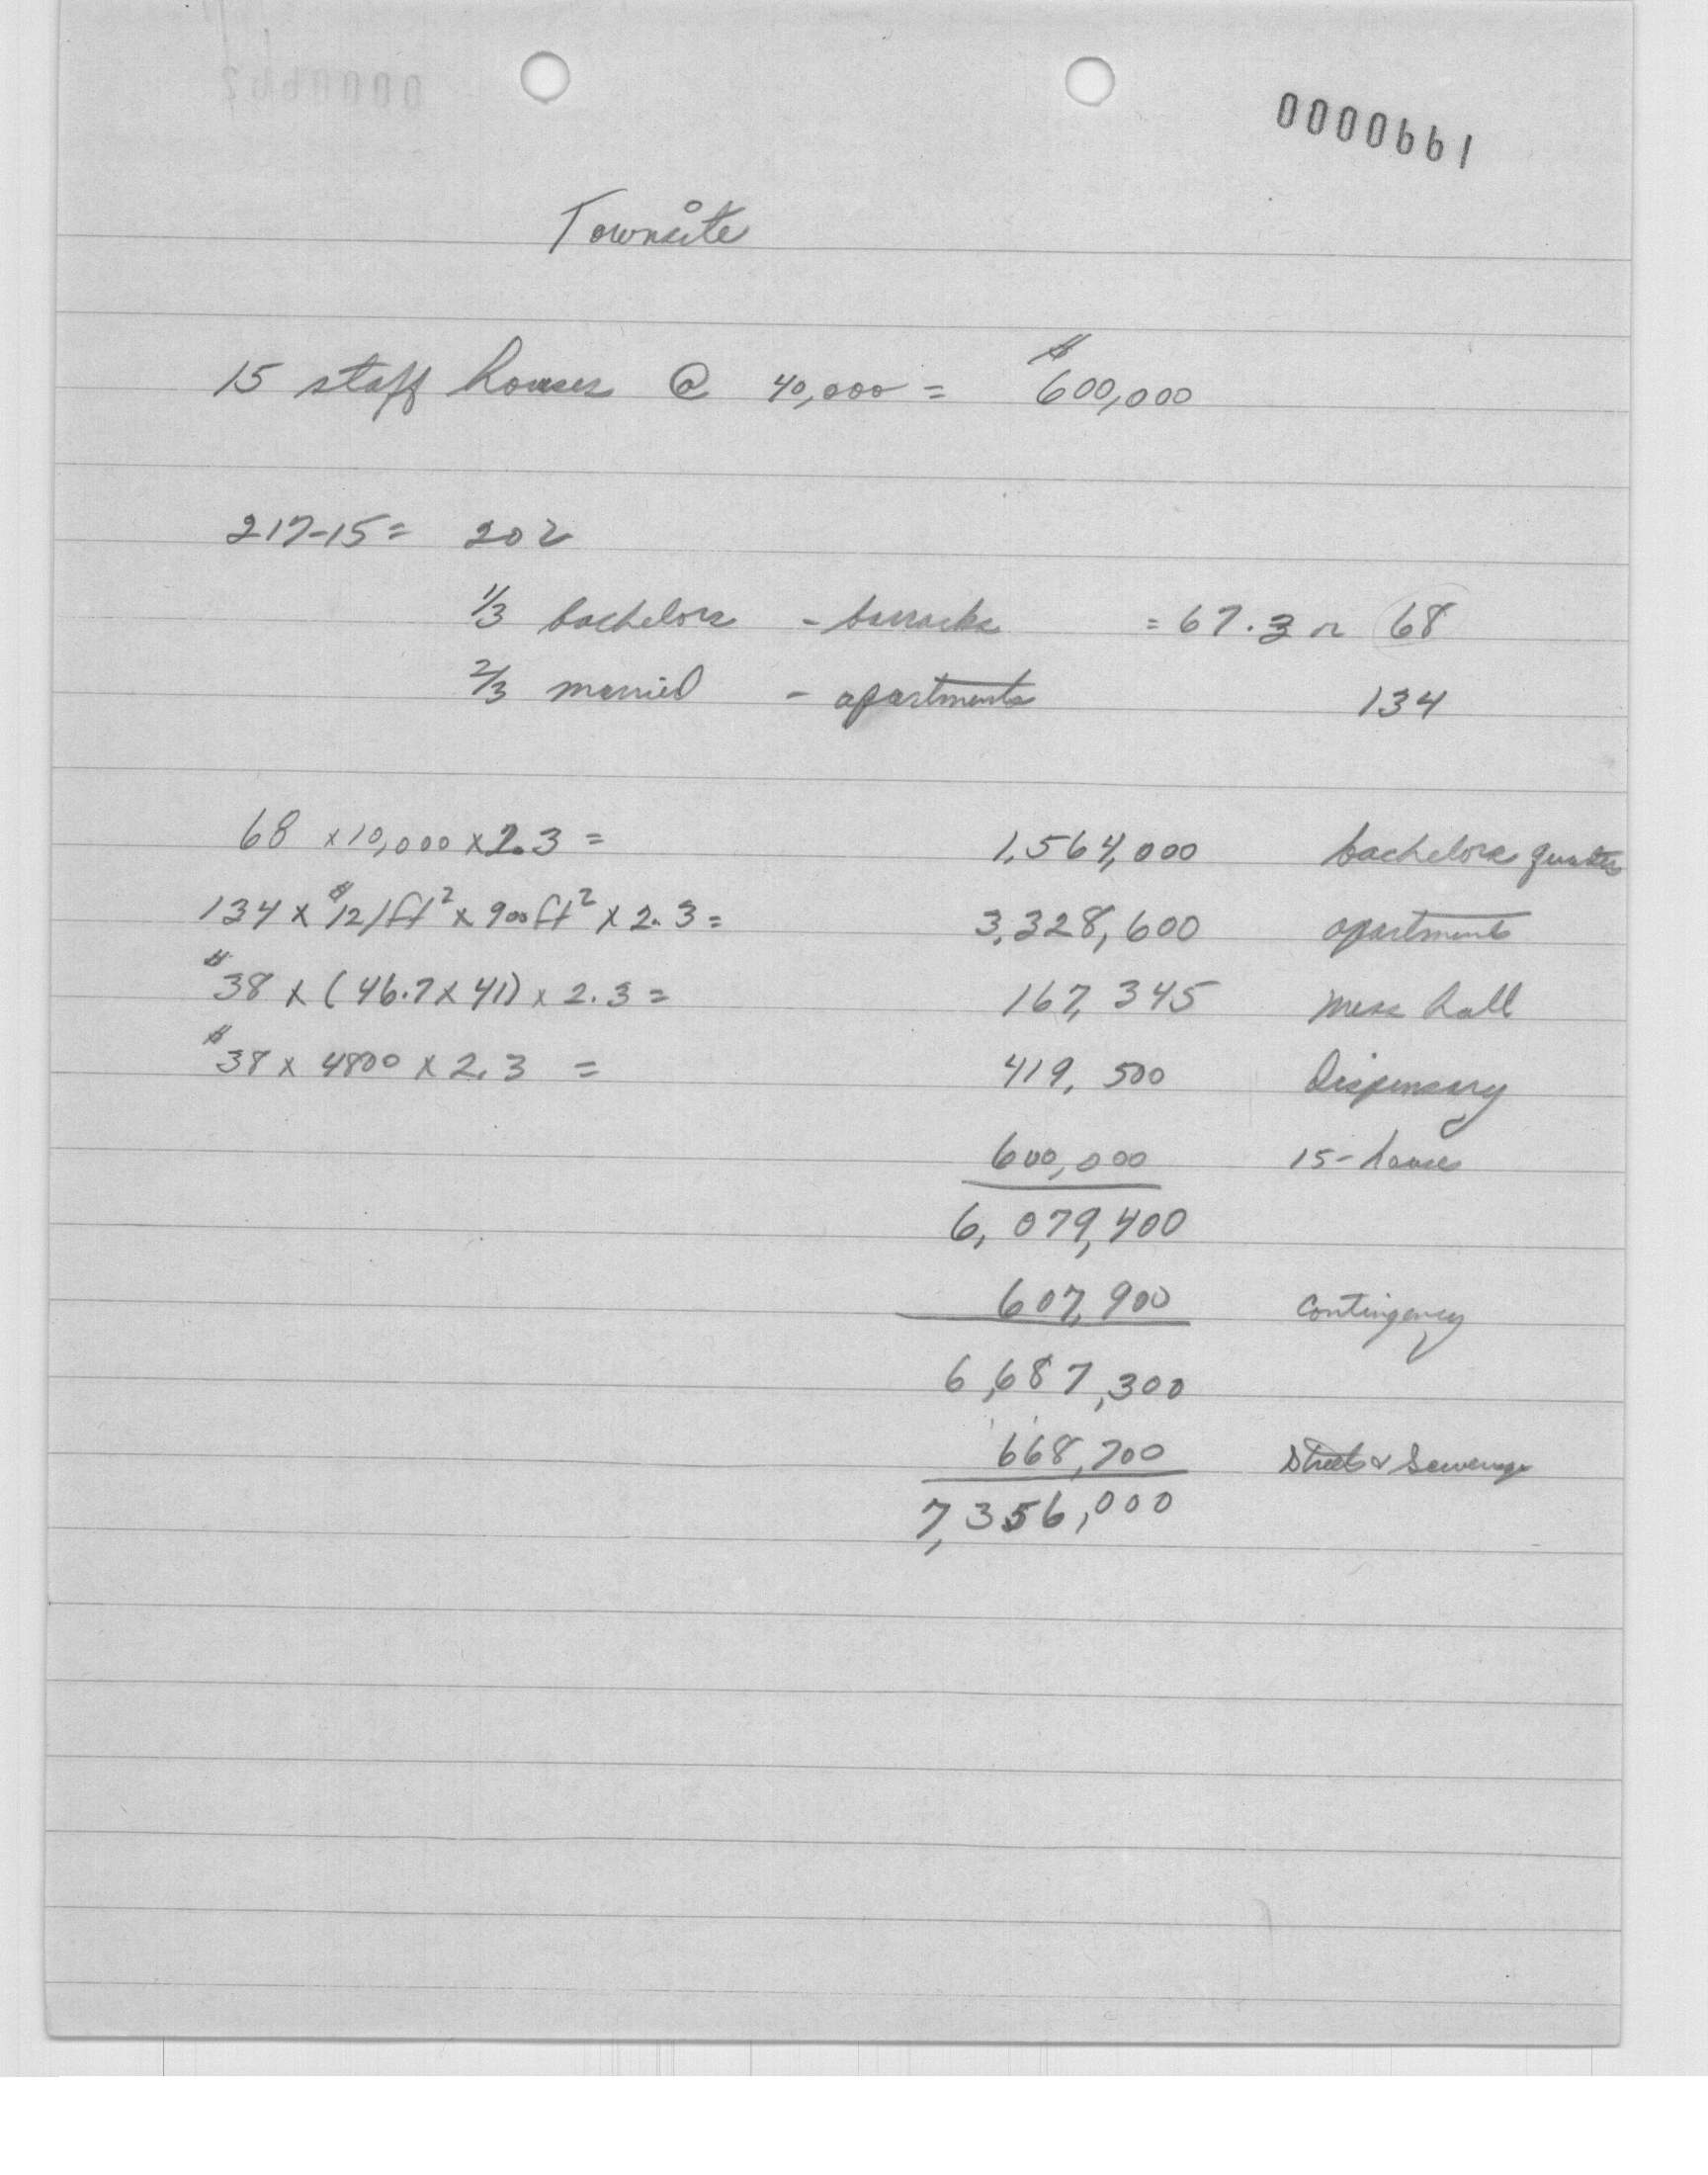 0000661
Townsite
15 staff houses @ 40,000 = $600,000
217-15 = 202
1/3 bachelors - barracks = 67.3 or 68
2/3 married - apartments 134
68 x 10,000 x 2.3 = 1,564,000 bachelors quarters
134 x $12/ft² x 900 ft² x 2.3 = 3,328,600 apartments
$38 x (46.7 x 41) x 2.3 = 167,345 mess hall
$38 x 4800 x 2.3 = 419,500 Dispensary
600,000 15-houses
6,079,400
607,900 Contingency
6,687,300
668,700 Streets & Sewerage
7,356,000